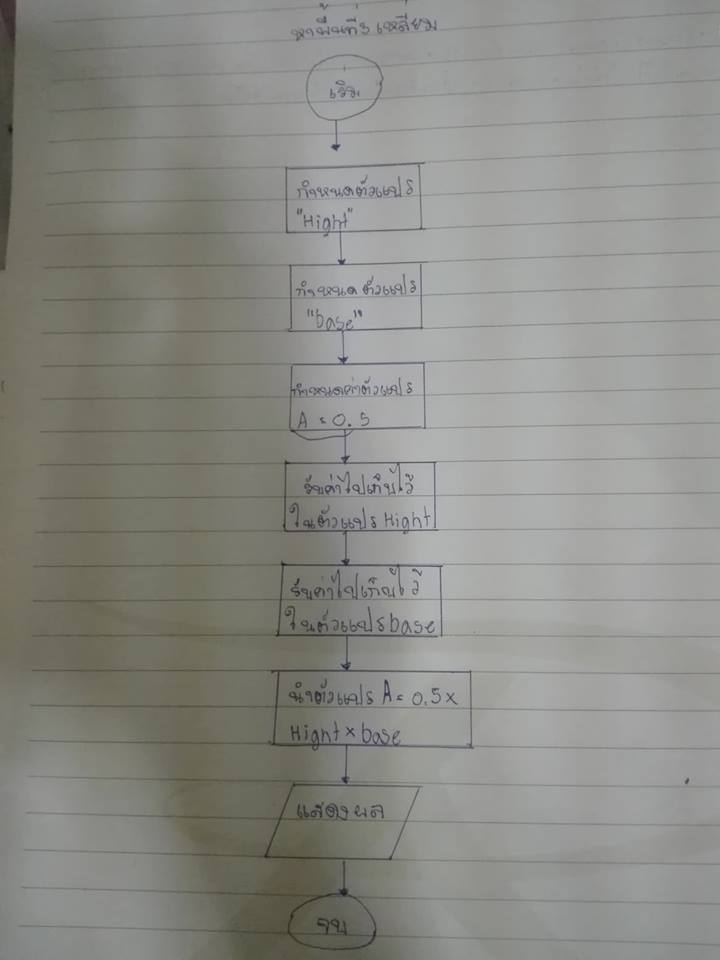 หาพื้นที่3เหลี่ยม
เริ่ม
กำหนดตัวแปร
"Hight"
กำหนดตัวแปร
"base"
กำหนดค่าตัวแปร
A = 0.5
รับค่าไปเก็บไว้
ในตัวแปร Hight
รับค่าไปเก็บไว้
ในตัวแปร base
นำตัวแปร A = 0.5 x
Hight x base
แสดงผล
จบ